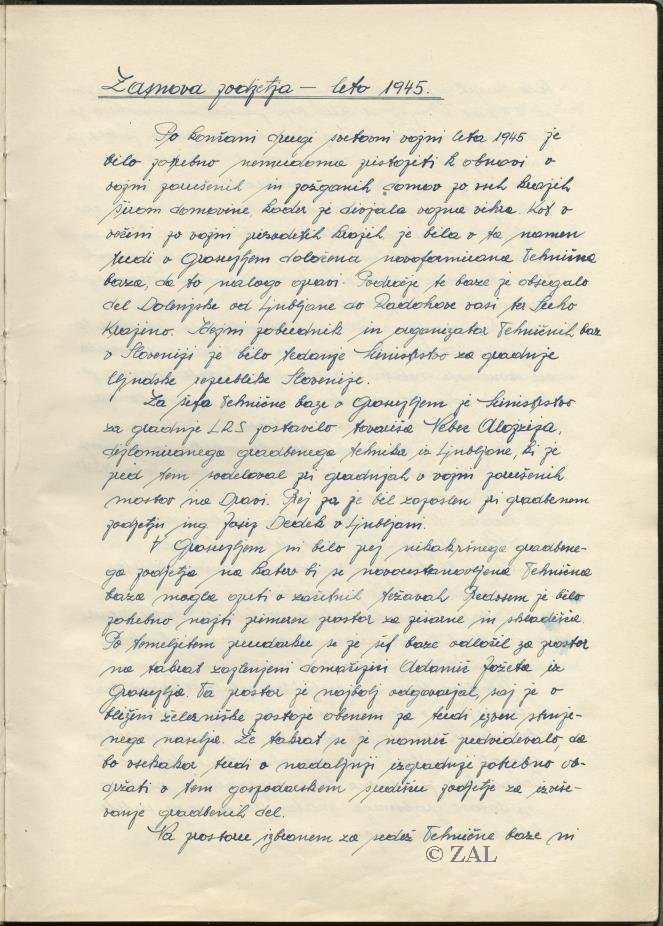 Zasnova podjetja — leto 1945.
Po končani drugi svetovni vojni leta 1945 je
bilo potrebno nemudoma pristopiti k obnovi v
vojni porušenih in požganih domov po vseh krajih
širom domovine, koder je divjala vojna vihra. Kot v
večini po vojni prizadetih krajih je bila v ta namen
tudi v Grosupljem določena novoformirana Tehnična
baza, da to nalogo opravi. Področje te baze je obsegalo
del Dolenjske od Ljubljane do Radohove vasi ter Suho
Krajino. Idejni pobudnik in organizator Tehničnih baz
v Sloveniji je bilo tedanje Ministrstvo za gradnje
Ljudske republike Slovenije.
Za šefa Tehnične baze v Grosupljem je Ministrstvo
za gradnje LRS postavilo tovariša Veber Alojzija,
diplomiranega gradbenega tehnika iz Ljubljane, ki je
pred tem sodeloval pri gradnjah v vojni porušenih
mostov na Dravi. Prej pa je bil zaposlen pri gradbenem
podjetju ing. Josip Dedek v Ljubljani.
V Grosupljem ni bilo prej nikakršnega gradbene-
ga podjetja na katero bi se novoustanovljena Tehnična
baza mogla opreti v začetnih težavah. Predvsem je bilo
potrebno najti primeren prostor za pisarne in skladišča.
Po temeljitem preudarku se je šef baze odločil za prostor
na takrat zaplenjeni domačiji Adamič Jožeta iz
Grosuplja. Ta prostor je najbolj odgovarjal, saj je v
bližini železniške postaje obenem pa tudi izven strnje-
nega naselja. Že takrat se je namreč predvidevalo, da
bo vsekakor tudi v nadaljnji izgradnji potrebno ob-
držati v tem gospodarskem središču podjetje za izvrše-
vanje gradbenih del.
Na prostoru izbranem za sedež Tehnične baze ni
© ZAL